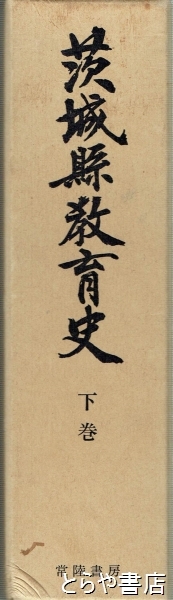 茨城縣教育史
下巻
常陸書房
とらや書店